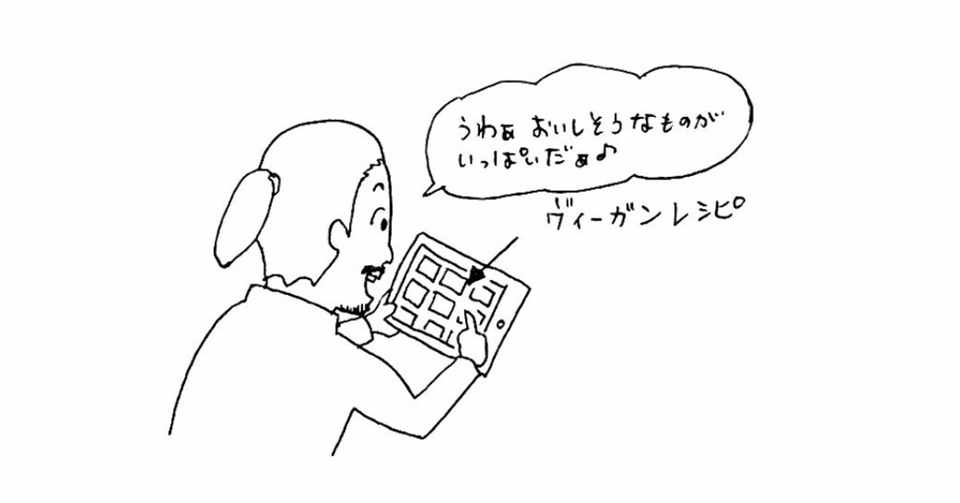 うわぁ おいしそうなものが
いっぱいだぁ♪
ヴィーガンレシピ